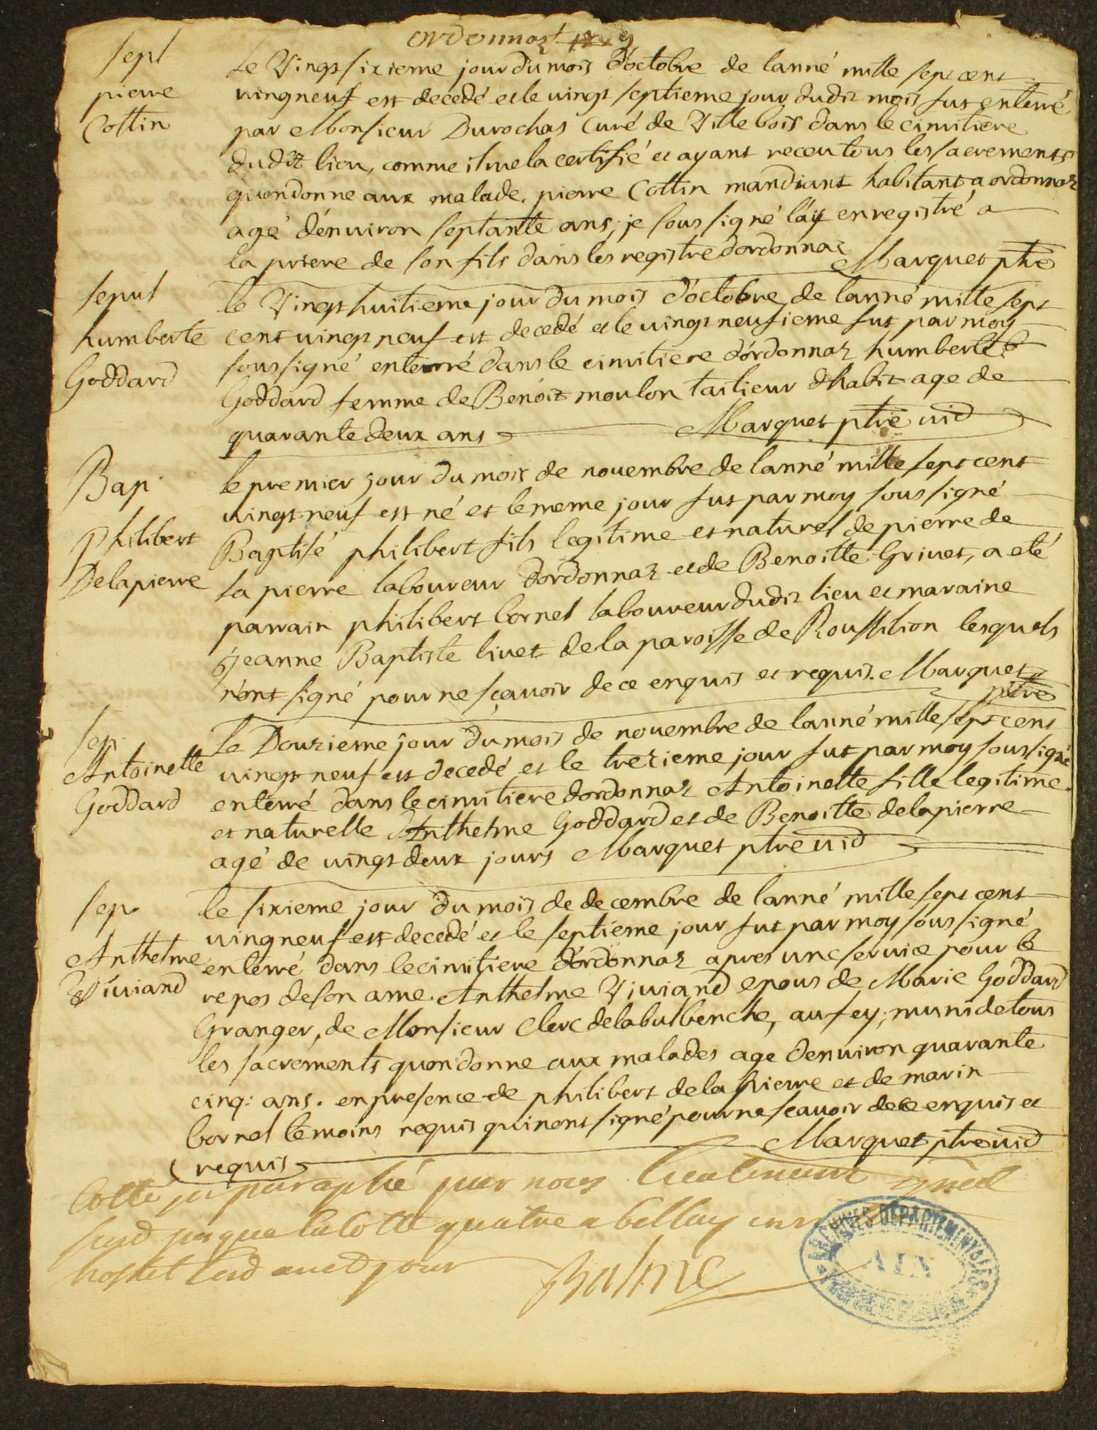 ordonnaz
sepl
pierre
Cottin
Le Vingt sixieme jour du mois d'octobre de lanné mille sept cent
vingneuf est decedé et le vingt septieme jour dudit mois fut enterré
par Monsieur Durochas Curé de Villebois dans le cimitiere
dudit lieu, comme il me la certifié et ayant receu tous les sacrements
quondonne aux malade, pierre Cottin mandiant habitant a ordonnaz
agé d'énviron septante ans, je soussigné láy enregistré a
la priere de son fils dans les registre dordonnaz Marquet ptre
sepul
humberte
Goddard
le Vingt huitieme jour du mois d'octobre de lanné mille sept
cent vingt neuf est decedé et le vingt neufieme fut par moy
soussigné enterré dans le cimitiere d'órdonnaz humberte
Goddard femme de Benoit moulon tailieur dhabit age de
quarante deux ans Marquet ptre vid
Bap.
Philibert
Delapierre
le premier jour du mois de novembre de lanné mille sept cent
vingt neuf est né et le meme jour fut par moy soussigné
Baptisé philibert fils legitime et naturel de pierre de
la pierre laboureur dordonnaz et de Benoitte Grivet, a eté
parrain philibert bornel laboureur dudit lieu et maraine
jeanne Baptiste livet de la paroisse de Roussilion lesquels
n'ont signé pour ne sçavoir de ce enquis et requis. Marquet
ptre
sep.
Antoinette
Goddard
Le Douzieme jour du mois de novembre de lanné mille sept cent
vingt neuf est decedé et le trezieme jour fut par moy soussigné
enterré dans le cimitiere dordonnaz Antoinette fille legitime
et naturelle d'Anthelme Goddard et de Benoitte delapierre
agé de vingt deux jours Marquet ptre vid
sep.
Anthelme
Viviand
le sixieme jour du mois de decembre de lanné mille sept cent
vingneuf est decedé et le septieme jour fut par moy soussigné
enterré dans le cimitiere d'órdonnaz apres une service pour le
repos de son ame. Anthelme Viviand epous de Marie Goddard
Granger, de Monsieur Clerc de la bulbenche, au fey; munis de tous
les sacrements quondonne aux malades age denviron quarante
cinq: ans. en presence de philibert de la pierre et de marin
bornel temoins requis qui nont signé pour ne scavoir de ce enquis et
requis Marquet ptre vid
Cotté et paraphé par nous lieutenant
jusqua la cotte quatre a belley
Balme
ARCHIVES DÉPARTEMENTALES
AIN